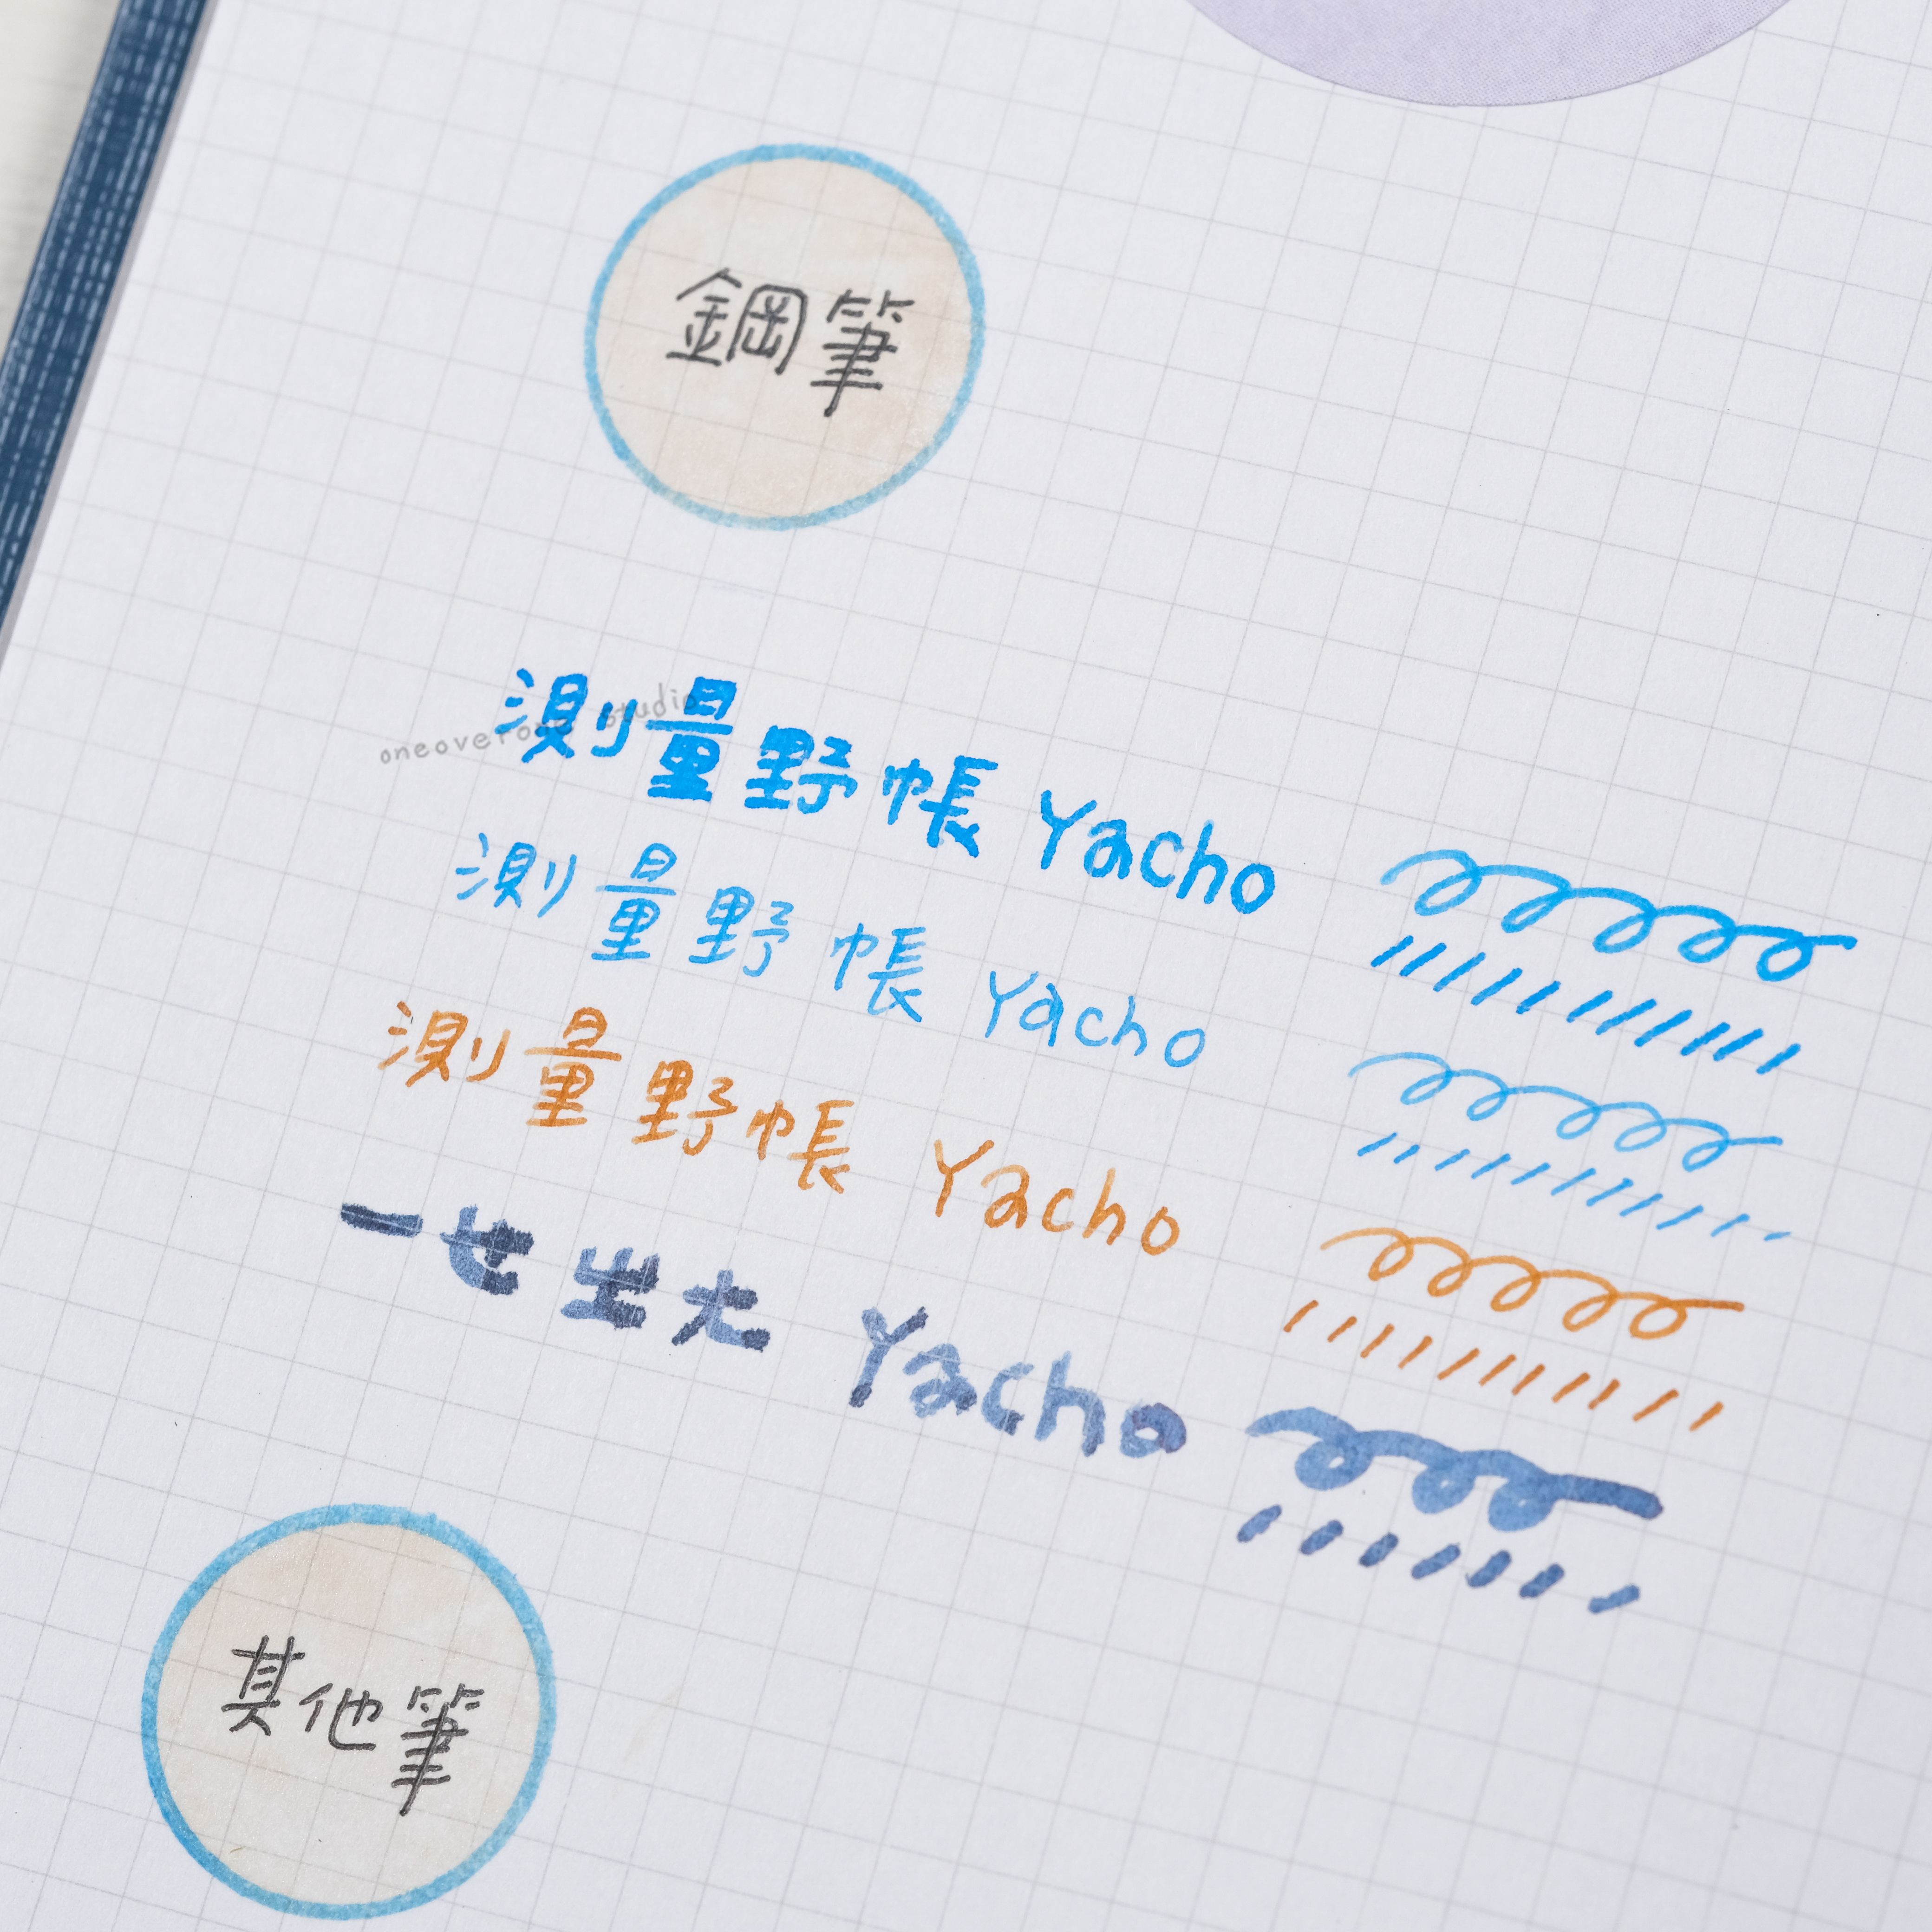 鋼筆
測量野帳 Yacho
oneoverone studio
測量野帳 Yacho
測量野帳 Yacho
一世出大 Yacho
其他筆